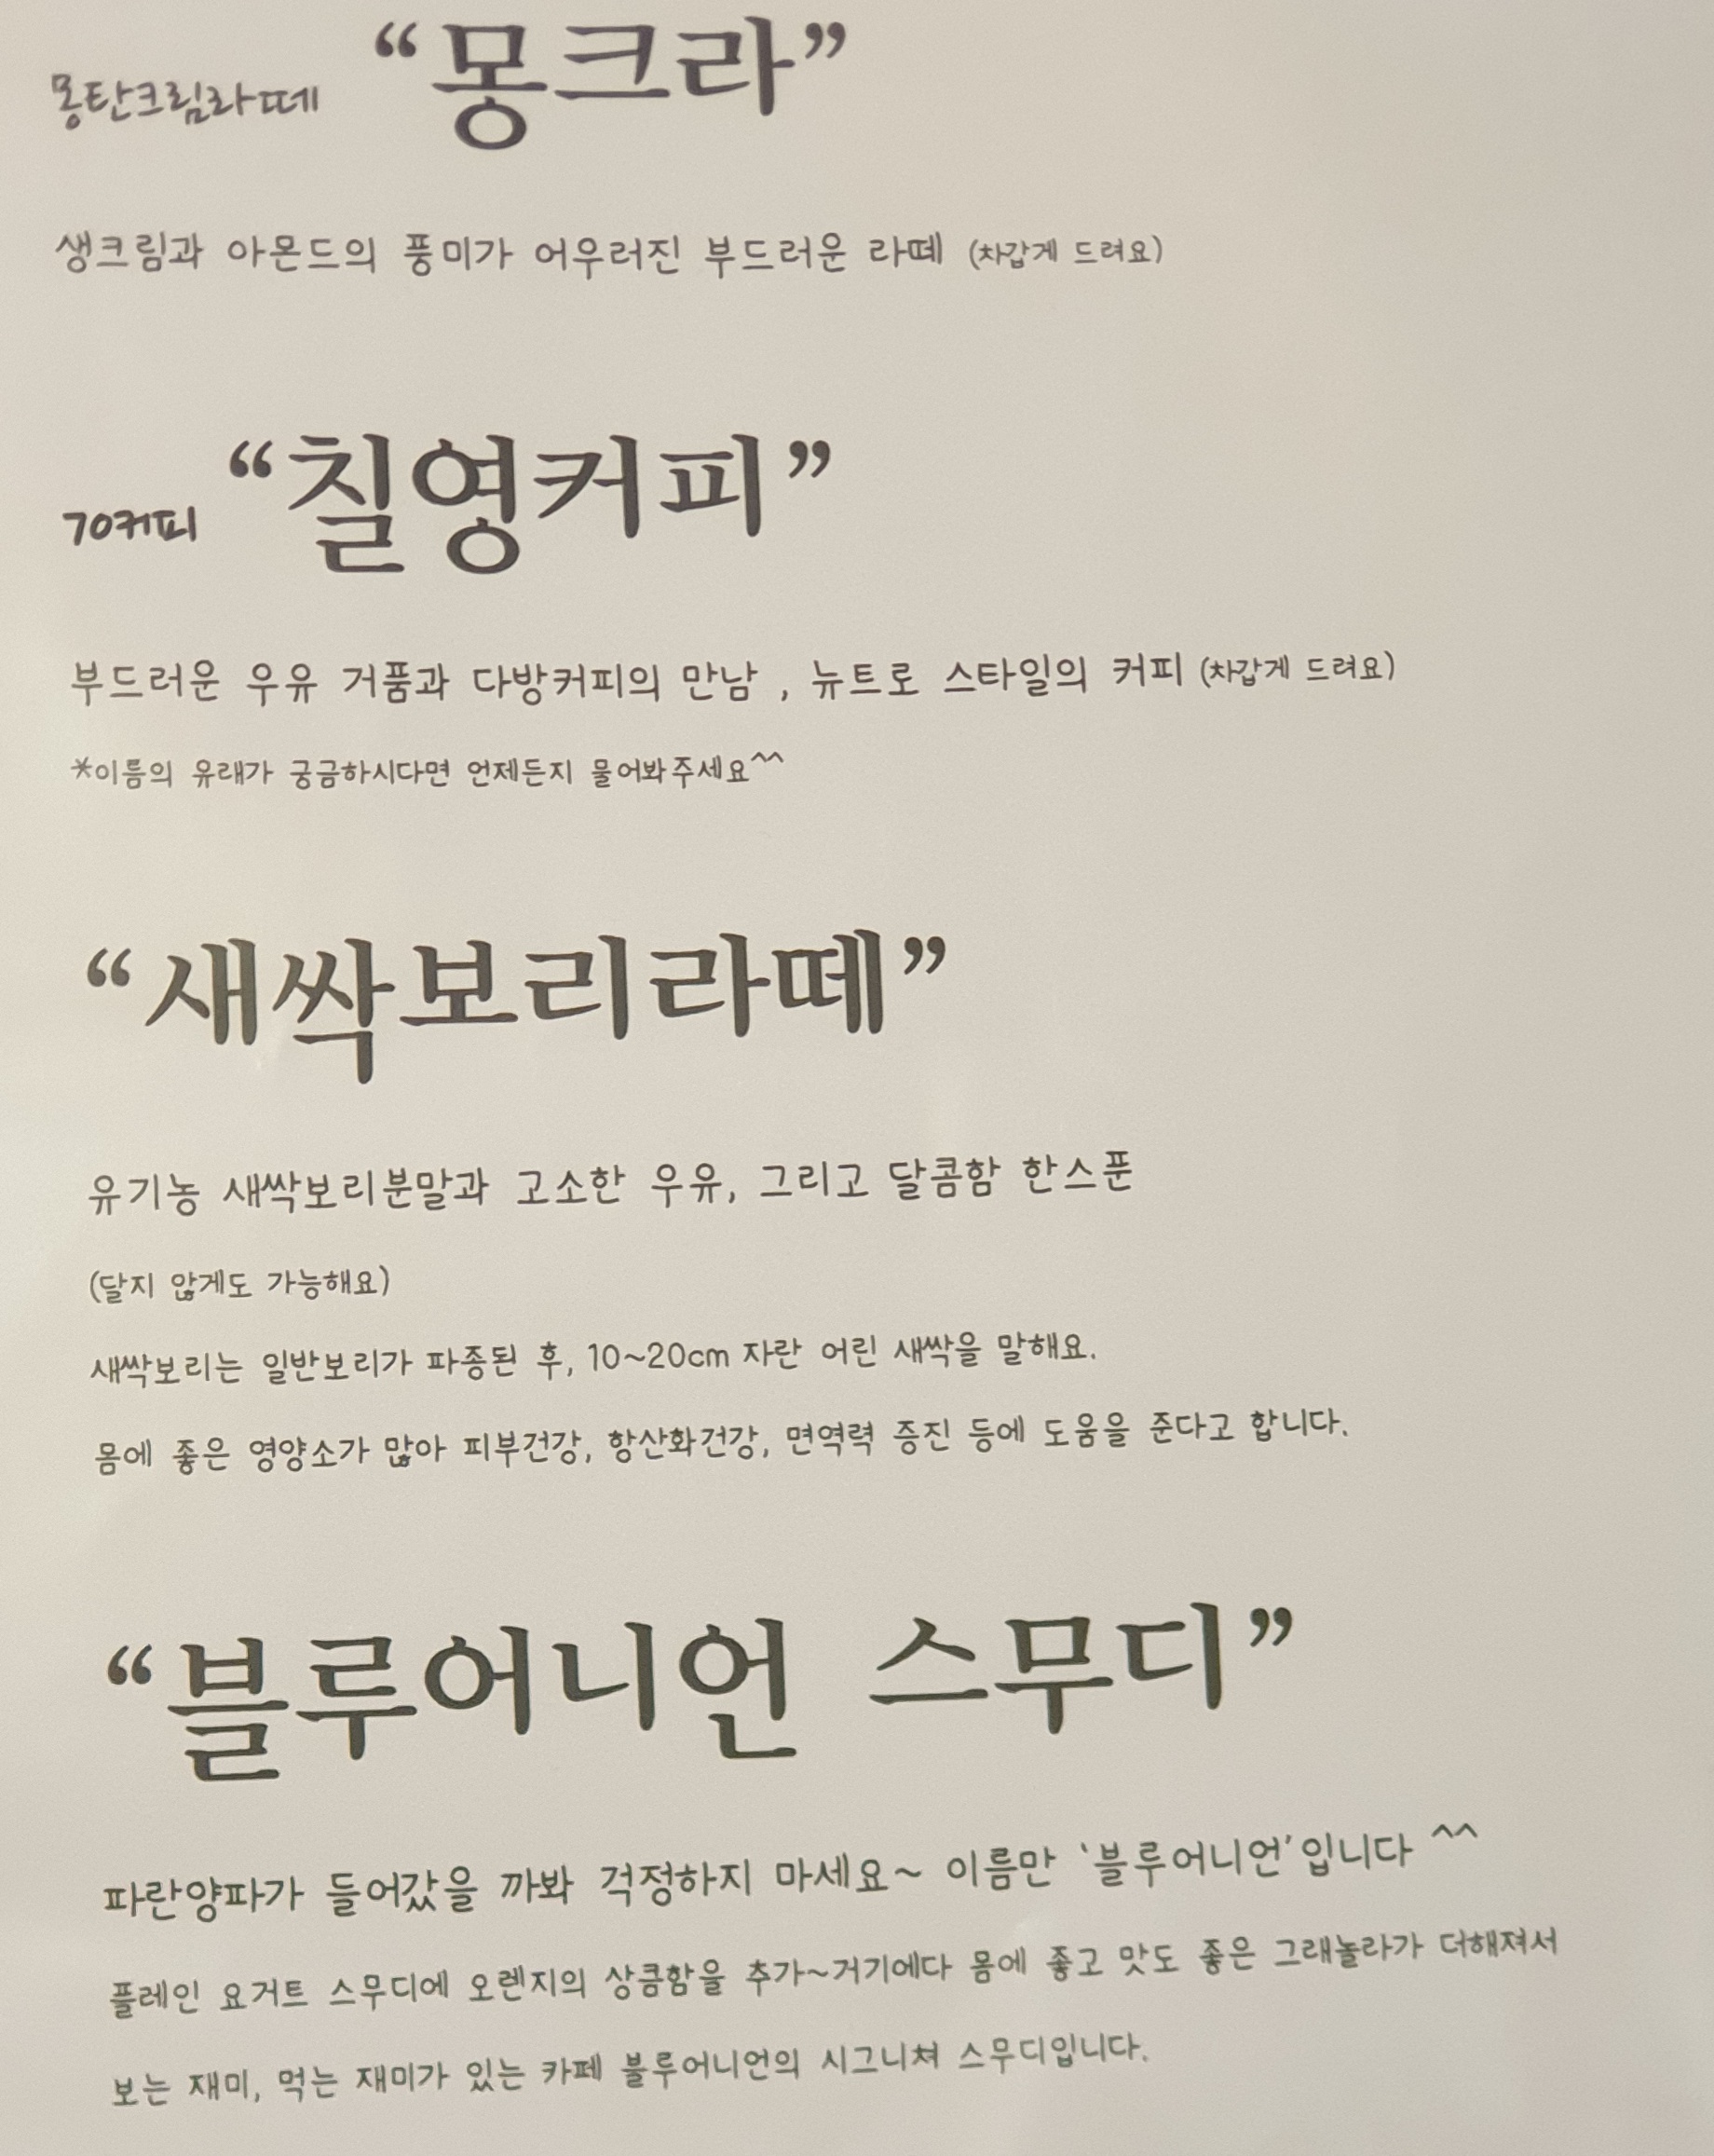 몽탄크림라떼 “몽크라”
생크림과 아몬드의 풍미가 어우러진 부드러운 라떼 (차갑게 드려요)
70커피 “칠영커피”
부드러운 우유 거품과 다방커피의 만남 , 뉴트로 스타일의 커피 (차갑게 드려요)
*이름의 유래가 궁금하시다면 언제든지 물어봐주세요^^
“새싹보리라떼”
유기농 새싹보리분말과 고소한 우유, 그리고 달콤함 한스푼
(달지 않게도 가능해요)
새싹보리는 일반보리가 파종된 후, 10~20cm 자란 어린 새싹을 말해요.
몸에 좋은 영양소가 많아 피부건강, 항산화건강, 면역력 증진 등에 도움을 준다고 합니다.
“블루어니언 스무디”
파란양파가 들어갔을 까봐 걱정하지 마세요~ 이름만 ‘블루어니언’입니다 ^^
플레인 요거트 스무디에 오렌지의 상큼함을 추가~거기에다 몸에 좋고 맛도 좋은 그래놀라가 더해져서
보는 재미, 먹는 재미가 있는 카페 블루어니언의 시그니쳐 스무디입니다.